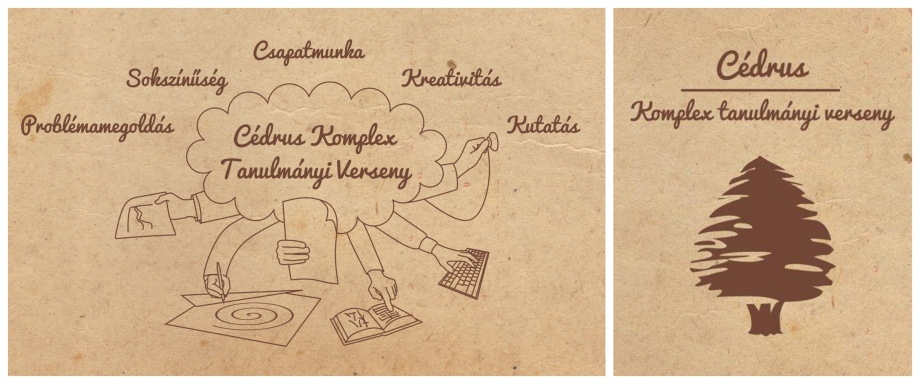 Csapatmunka
Sokszínűség
Kreativitás
Problémamegoldás
Kutatás
Cédrus Komplex
Tanulmányi Verseny
Cédrus
Komplex tanulmányi verseny